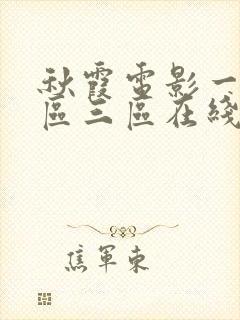 秋霞電影一
區三區在綫
焦軍東